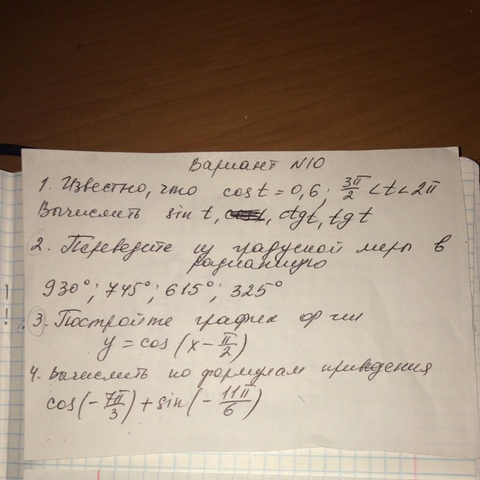 Вариант N10
1. Известно, что cos t = 0,6; 3π/2 < t < 2π
Вычислить sin t, ctgt, tgt
2. Переведите из градусной меры в
радианную
930°; 745°; 615°; 325°
3. Постройте график ф-ии
y = cos (x - π/2)
4. Вычислить по формулам приведения
cos(-7π/3) + sin(-11π/6)